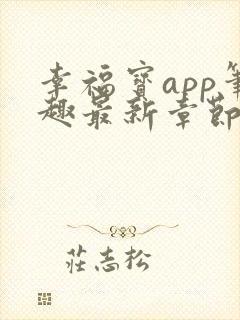 幸福寳app筆
趣最新章節
莊志松